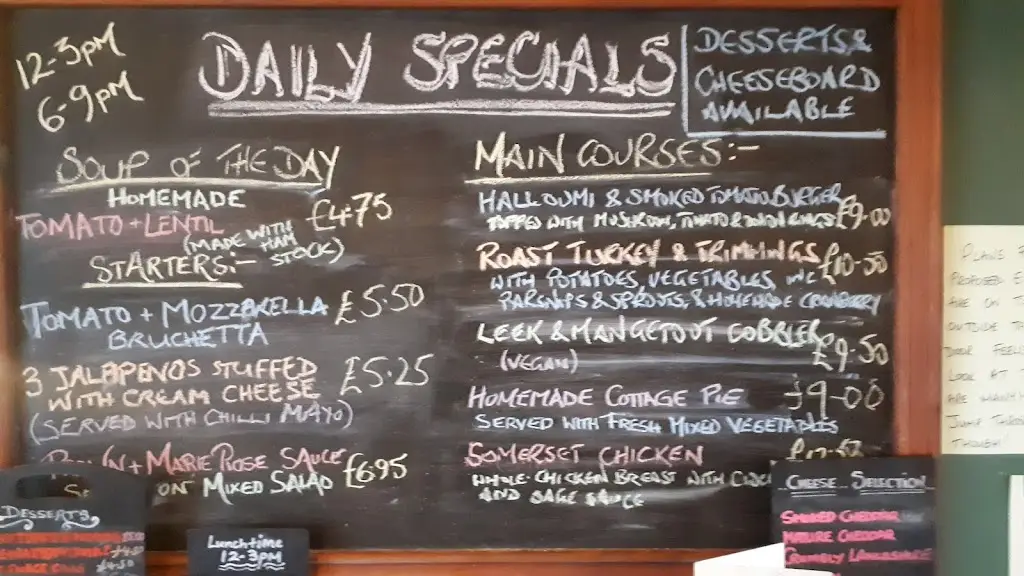 12-3PM
6-9PM
DAILY SPECIALS
DESSERTS &
CHEESEBOARD
AVAILABLE
SOUP OF THE DAY
HOMEMADE
TOMATO + LENTIL £4.75
(MADE WITH
HAM
STOCK)
STARTERS:-
TOMATO + MOZZARELLA £5.50
BRUCHETTA
3 JALAPENOS STUFFED £5.25
WITH CREAM CHEESE
(SERVED WITH CHILLI MAYO)
+ MARIE ROSE SAUCE £6.95
ON MIXED SALAD
MAIN COURSES:-
HALLOUMI & SMOKED TOMATO BURGER
TOPPED WITH MUSHROOM, TOMATO & ONION RINGS £9.00
ROAST TURKEY & TRIMMINGS £10.50
WITH POTATOES, VEGETABLES, INC
PARSNIPS & SPROUTS, & HOMEMADE CRANBERRY
LEEK & MANGETOUT COBBLER £9.50
(VEGAN)
HOMEMADE COTTAGE PIE £9-00
SERVED WITH FRESH MIXED VEGETABLES
SOMERSET CHICKEN
WHOLE CHICKEN BREAST WITH
AND SAGE SAUCE
DESSERTS
£4.50
Lunchtime
12-3PM
CHEESE SELECTION
SMOKED CHEDDAR
MATURE CHEDDAR
CRUMBLY LANCASHIRE
PLANS
PROPOSED
ARE ON
OUTSIDE
DOOR FEEL
LOOK AT
ARE
JUMP
THOUGH